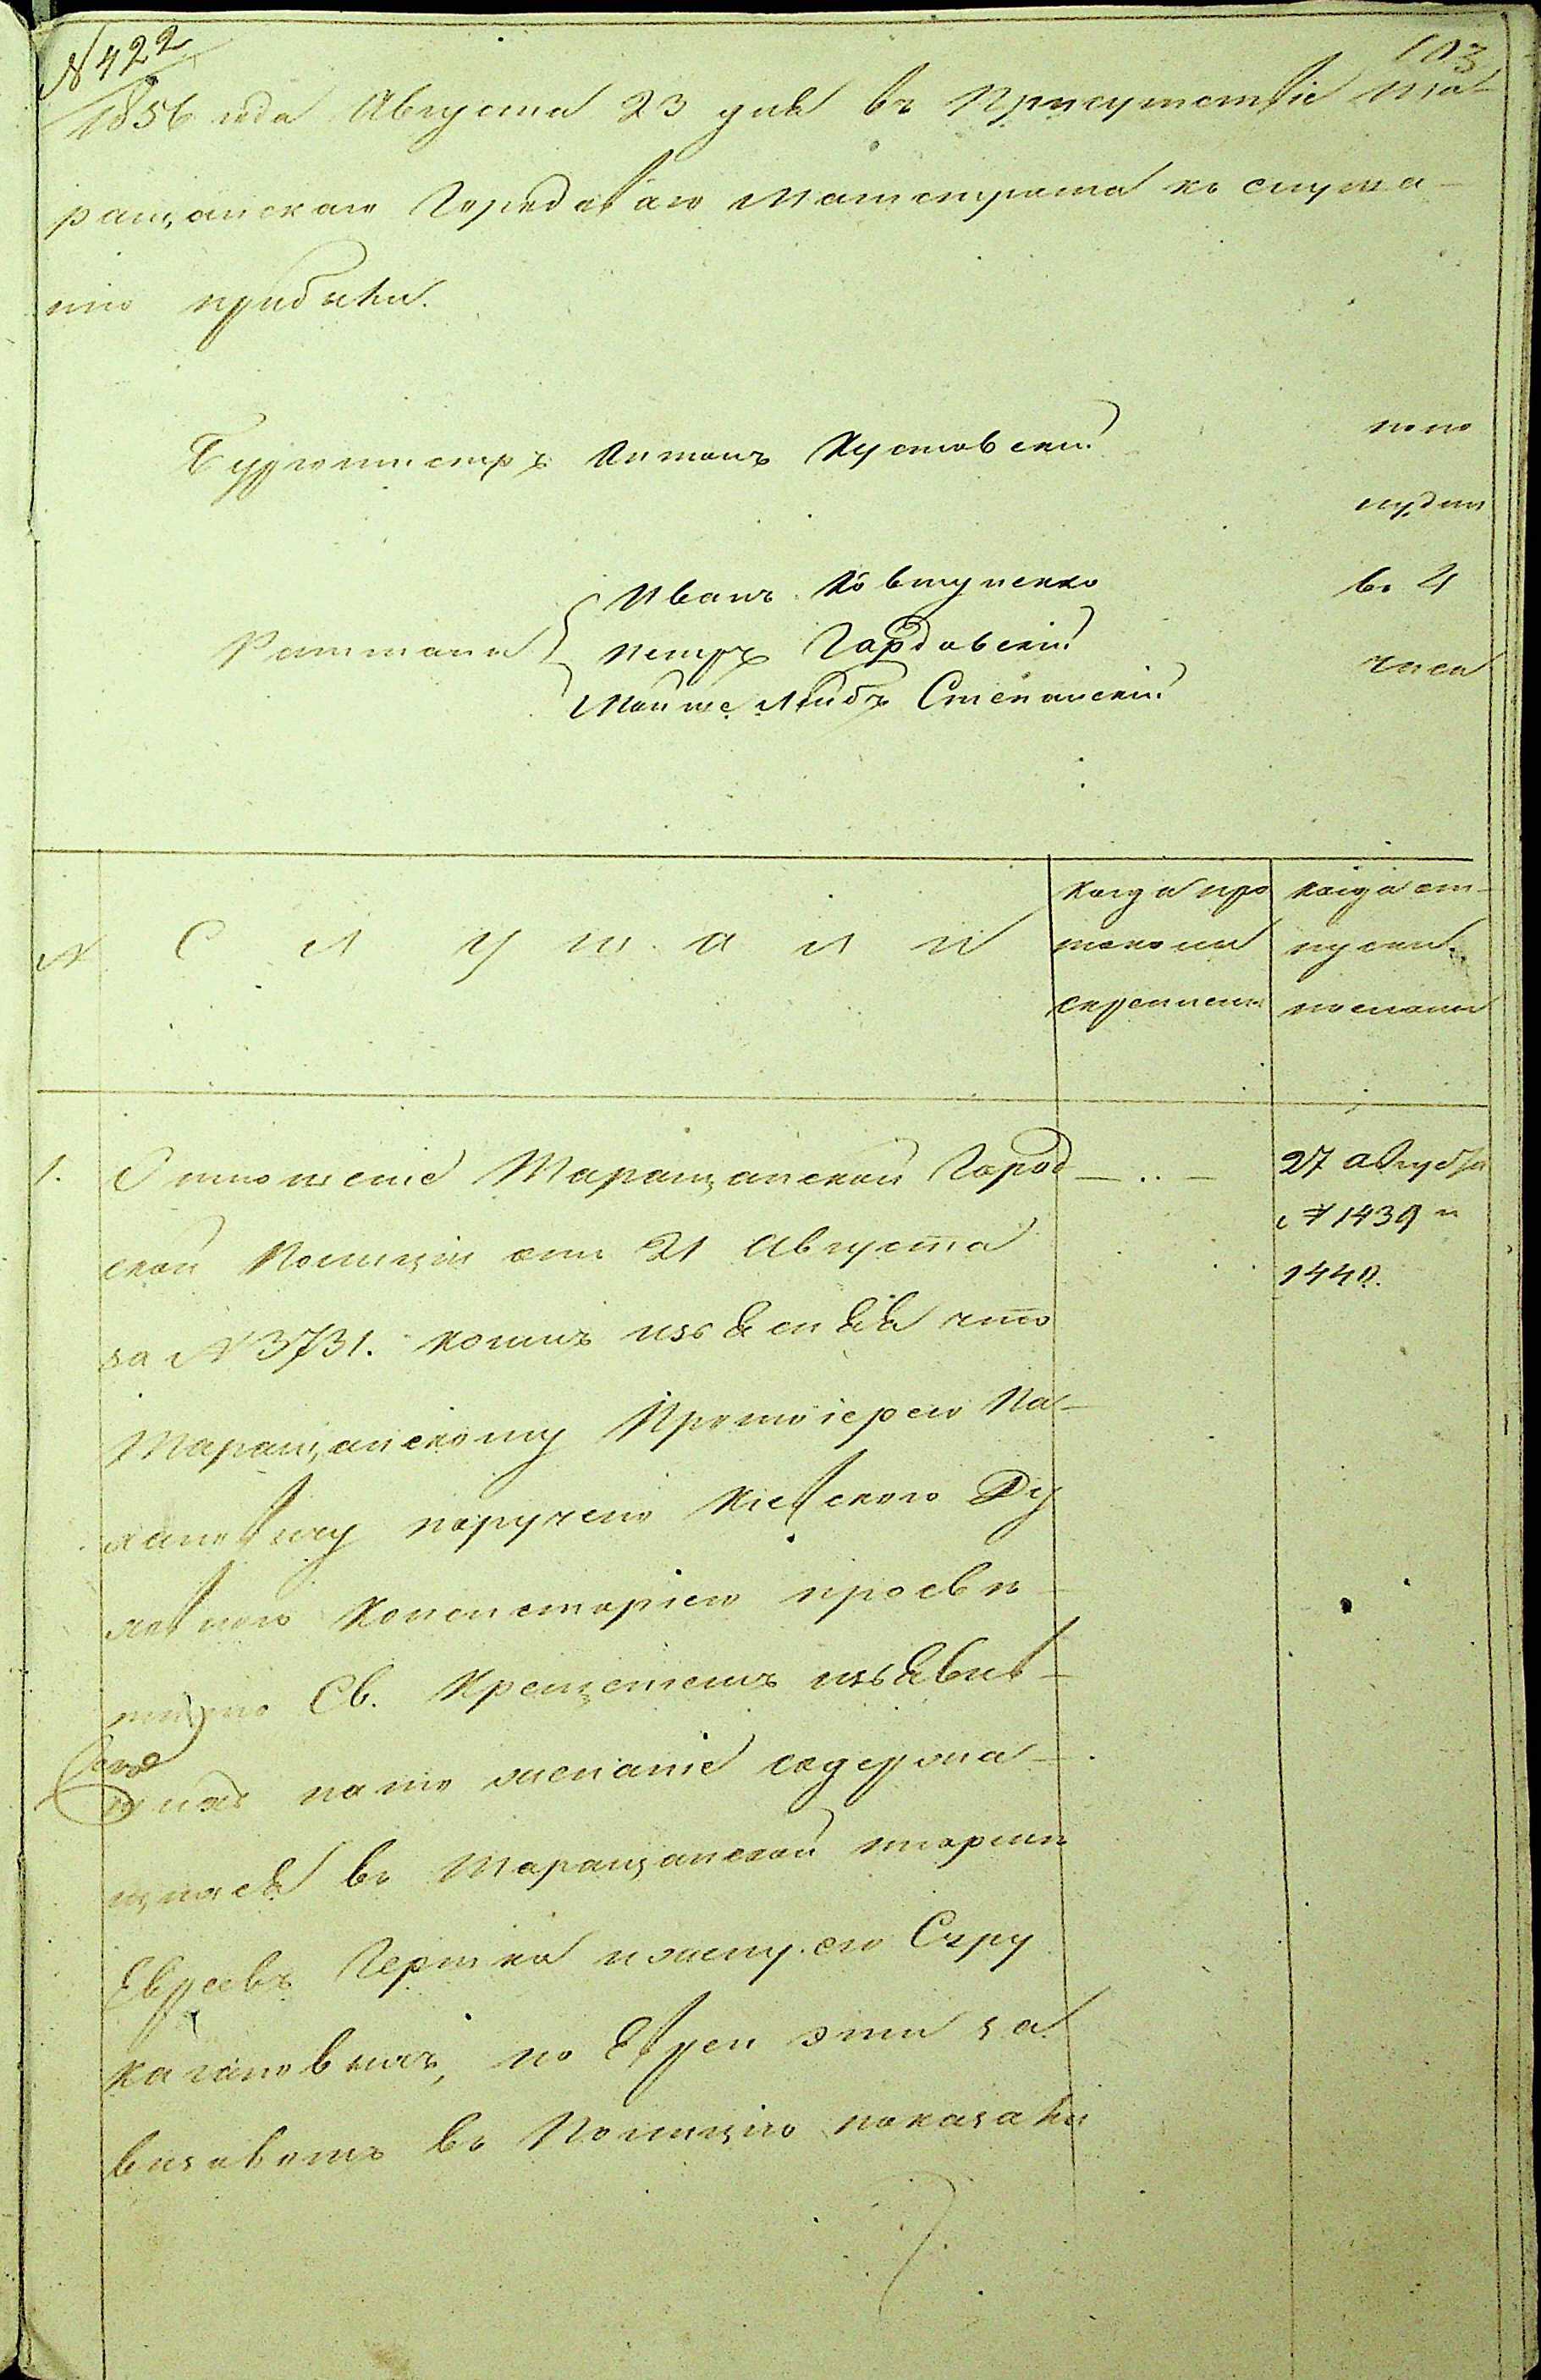 № 422
103
1856 года Августа 23 дня въ Присутствіе Та-
ращанскаго Городоваго Магистрата къ слуша-
нію прибыли.
Бургомистръ Антонъ Кустовскій
попо
лудни
Иванъ Ковтуненко
въ 4
Ратманы
Петръ Гордовскій
часа
Мошко Лейбъ Степанскій
№
С л у ш а л и
Когда про
токолы
скреплены
когда от-
пуски
посланы
1. Отношеніе Таращанской Город
ской Полиціи отъ 21 Августа
за № 3731. коимъ изъясняя что
Таращанскому Протоіерею Па-
поручено Кіевскою Ду
ховною Консисторіею просвѣ-
тить Св. Крещеніемъ изъявив-
шихъ на то желаніе содержа-
щихся въ Таращанской тюрьмѣ
Евреевъ Гершка и жену его Суру
но Евреи эти за
вызовомъ въ Полицію показали
27 августа
№ 1439 и
1440.